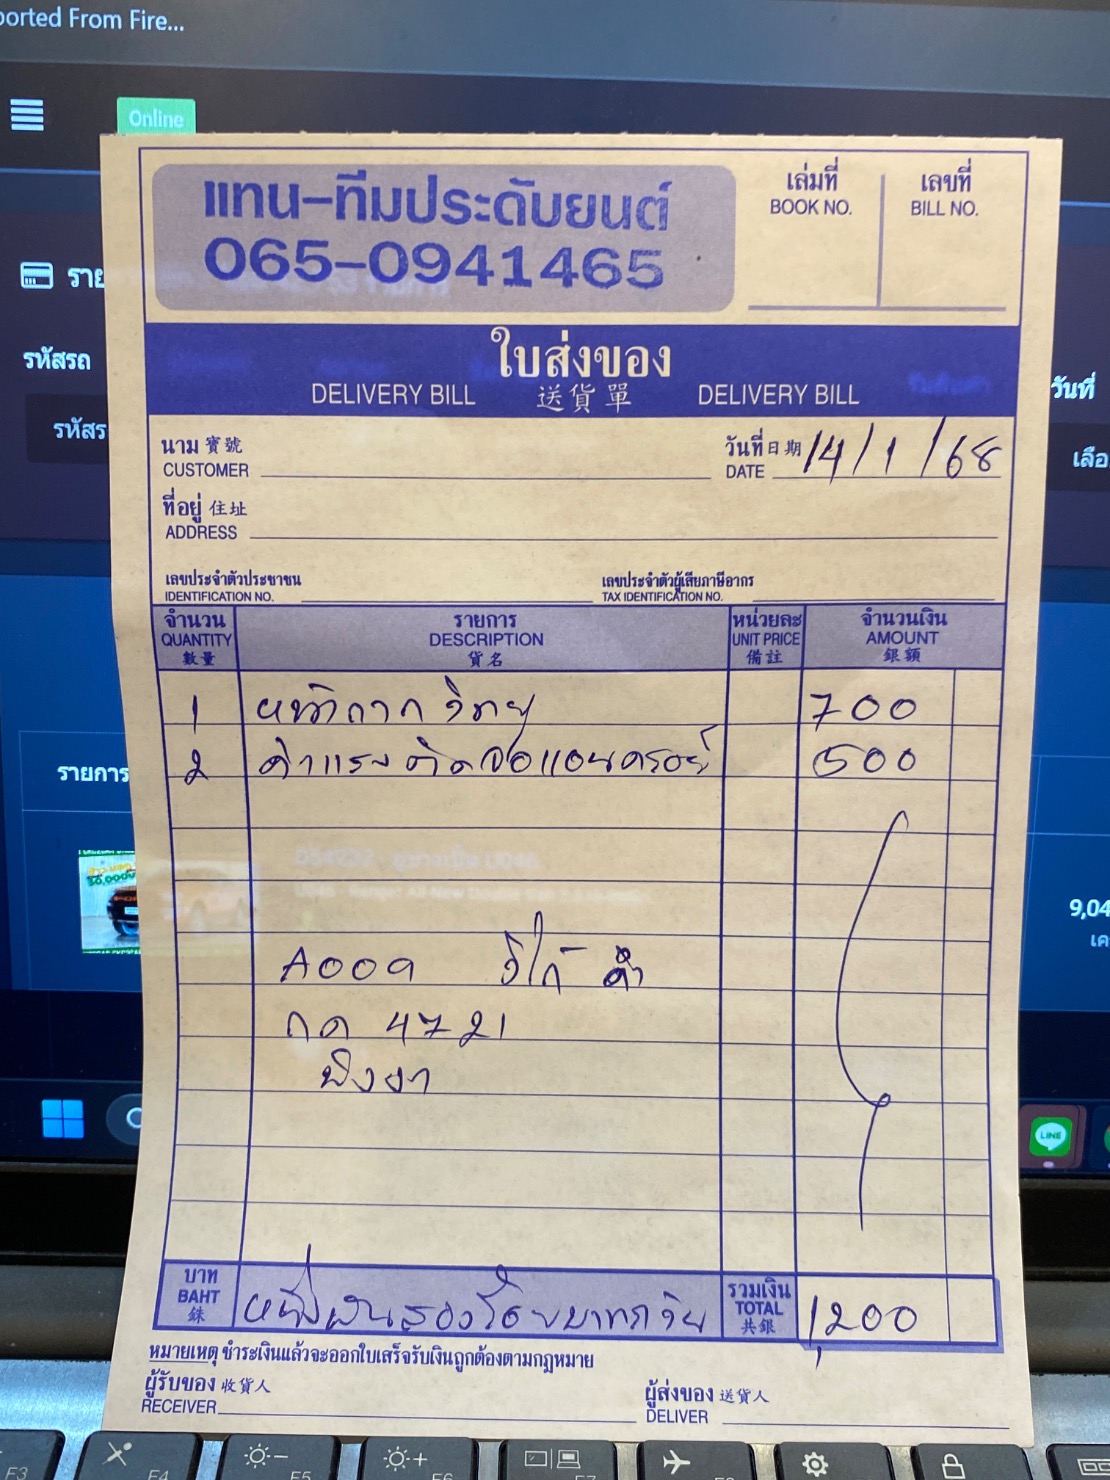 ported From Fire...
Online
แทน-ทีมประดับยนต์
065-0941465
เล่มที่
BOOK NO.
เลขที่
BILL NO.
ราย
รหัสรถ
รหัสร
วันที่
เลือ
ใบส่งของ
DELIVERY BILL 送貨單 DELIVERY BILL
นาม 寶號
CUSTOMER
วันที่ 日期
DATE 14/1/68
ที่อยู่ 住址
ADDRESS
เลขประจำตัวประชาชน
IDENTIFICATION NO.
เลขประจำตัวผู้เสียภาษีอากร
TAX IDENTIFICATION NO.
จำนวน
QUANTITY
數量
รายการ
DESCRIPTION
貨名
หน่วยละ
UNIT PRICE
備註
จำนวนเงิน
AMOUNT
銀額
1 หน้ากากวิทยุ 700
2 ค่าแรงติดจอแอนดรอย์ 500
รายการ
9,04
A009 วีโก้ ดำ
กด 4721
LINE
บาท
BAHT
銖
หนึ่งพันสองร้อยบาทถ้วน
รวมเงิน
TOTAL
共銀
1,200
หมายเหตุ ชำระเงินแล้วจะออกใบเสร็จรับเงินถูกต้องตามกฎหมาย
ผู้รับของ 收貨人
RECEIVER
ผู้ส่งของ 送貨人
DELIVER
F3
F4
F5
F6
F7